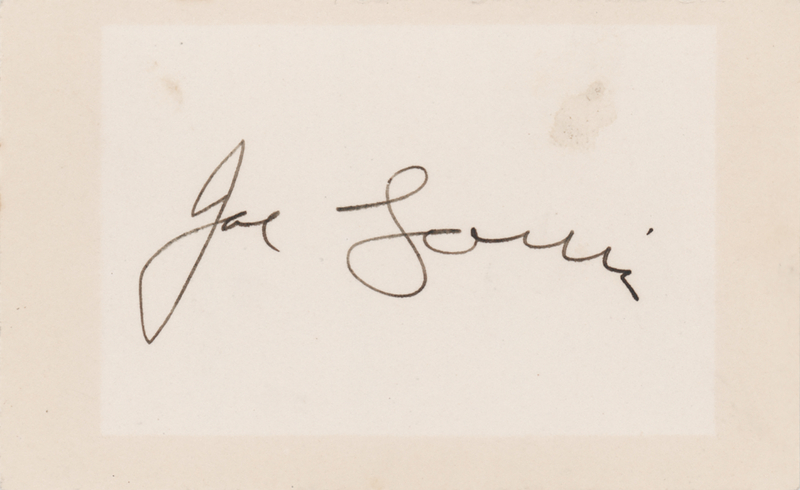 Joe Louis